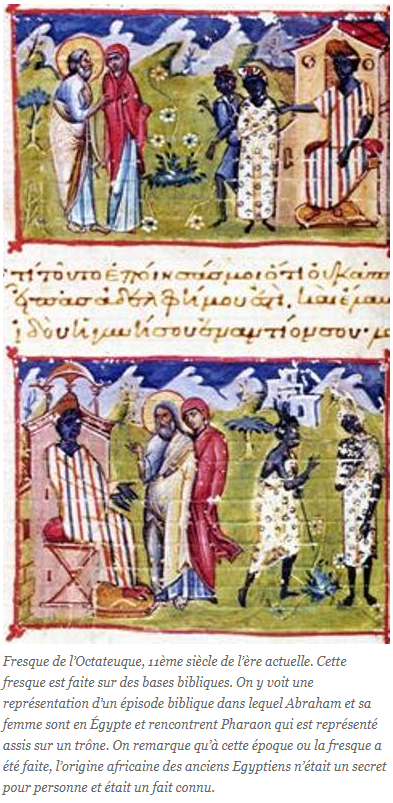 τί τοῦτο ἐποίησάς μοι ὅτι οὐκ
ἀδελφή μου
ἰδοὺ ἡ γυνή σου ἐναντίον σου·
Fresque de l'Octateuque, 11ème siècle de l'ère actuelle. Cette
fresque est faite sur des bases bibliques. On y voit une
représentation d'un épisode biblique dans lequel Abraham et sa
femme sont en Égypte et rencontrent Pharaon qui est représenté
assis sur un trône. On remarque qu'à cette époque ou la fresque a
été faite, l'origine africaine des anciens Egyptiens n'était un secret
pour personne et était un fait connu.